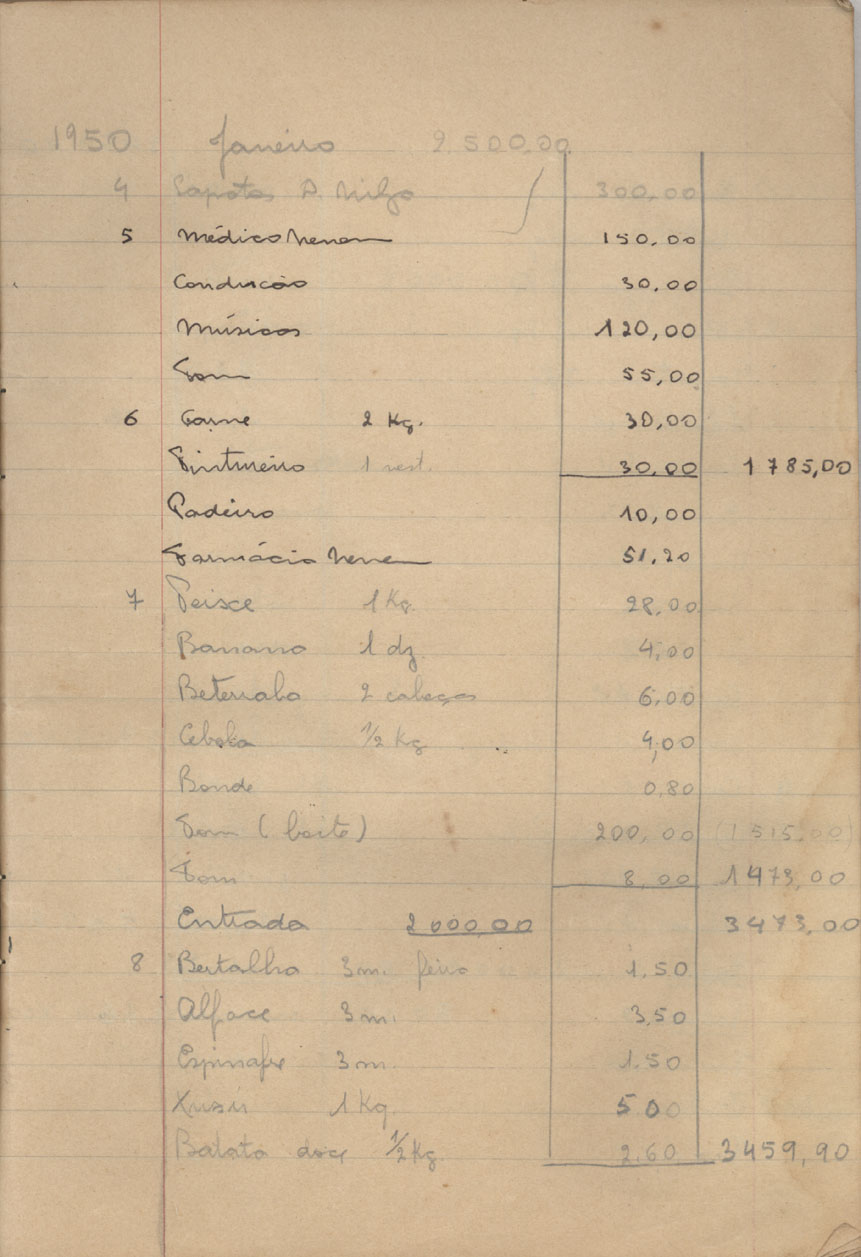 1950 Janeiro 2.500,00
4 Sapatos D. Nilza 300,00
5 Médico Nenem 150,00
Condução 30,00
Músicas 120,00
Tom 55,00
6 Carne 2 Kg. 30,00
Tintureiro 1 vest. 30,00 1785,00
Padeiro 10,00
Farmácia Nenem 51,20
7 Peisce 1 Kg. 28,00
Banana 1 dz. 4,00
Beterraba 2 cabeças 6,00
Cebola 1/2 Kg 4,00
Bonde 0,80
Tom (boite) 200,00 (1515,00)
Tom 8,00 1473,00
Entrada 2000,00 3473,00
8 Bertalha 3 m. feira 1,50
Alface 3 m. 3,50
Espinafre 3 m. 1.50
Xuxú 1 Kg. 500
Batata doce 1/2 Kg. 2.60 3459,90